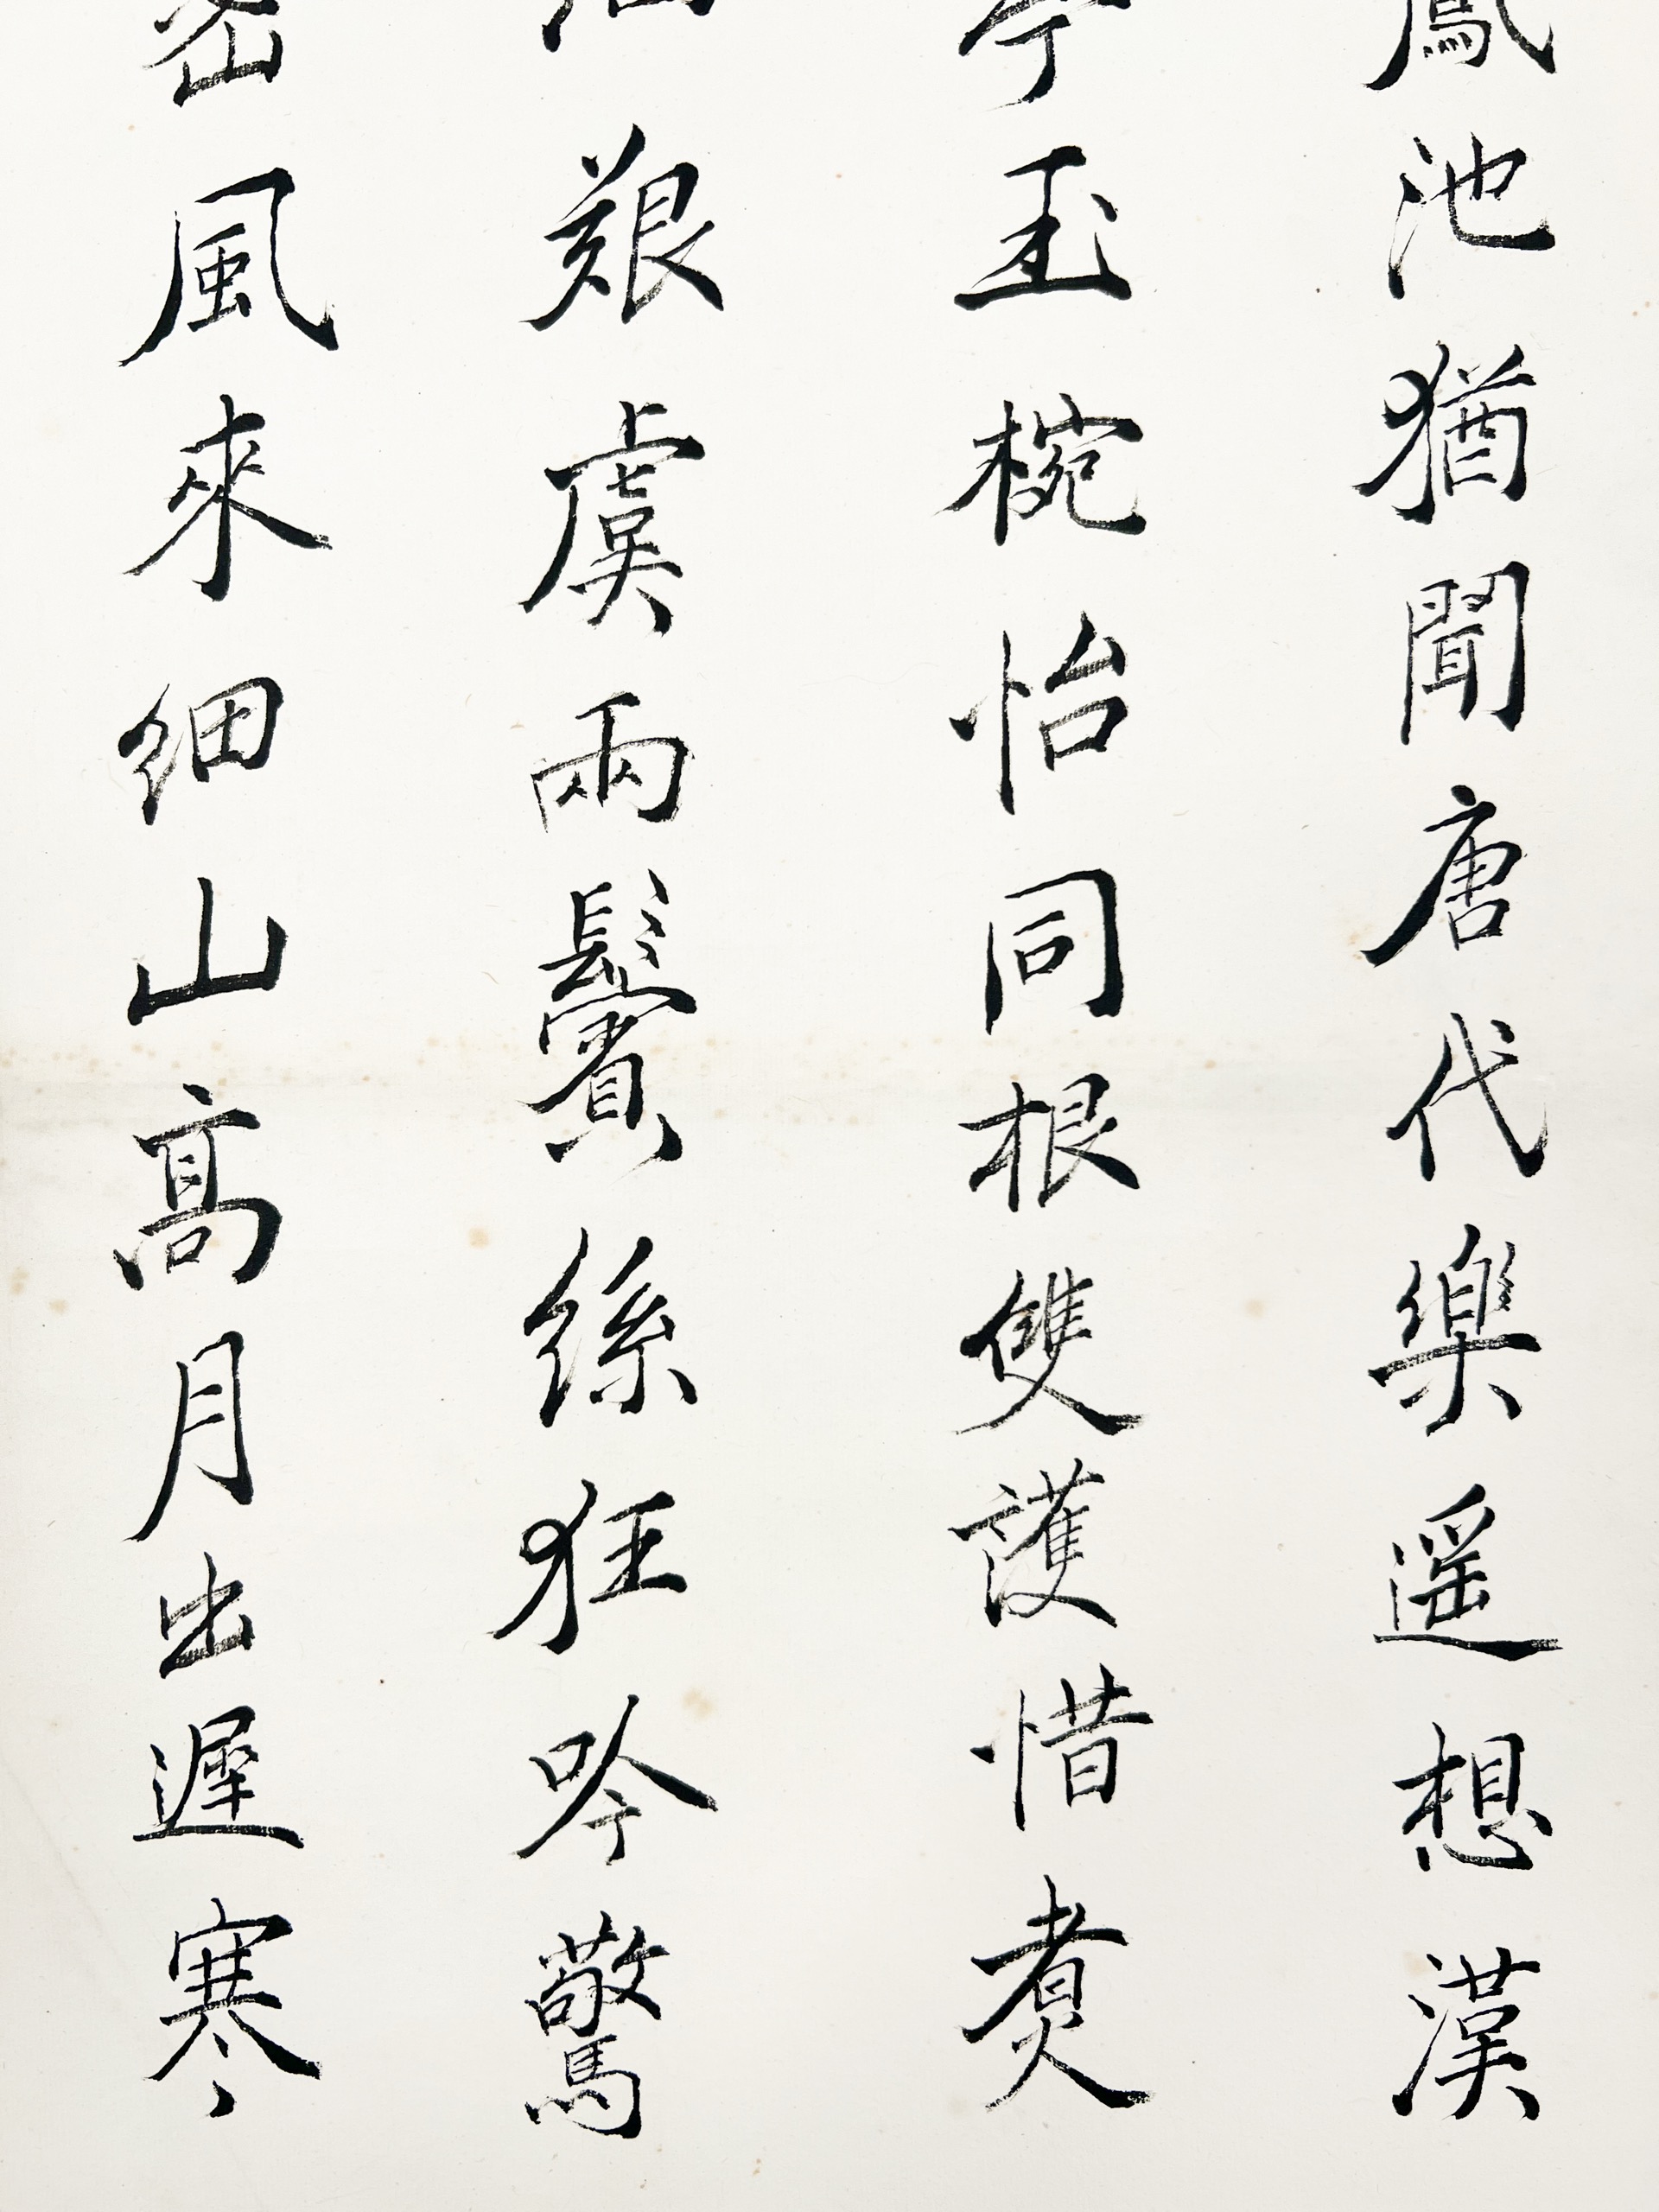 鳳池猶聞唐代樂遥想漢
亭玉椀怡同根雙護惜煑
艱虞兩鬢絲狂吟驚
密風來細山高月出遲寒